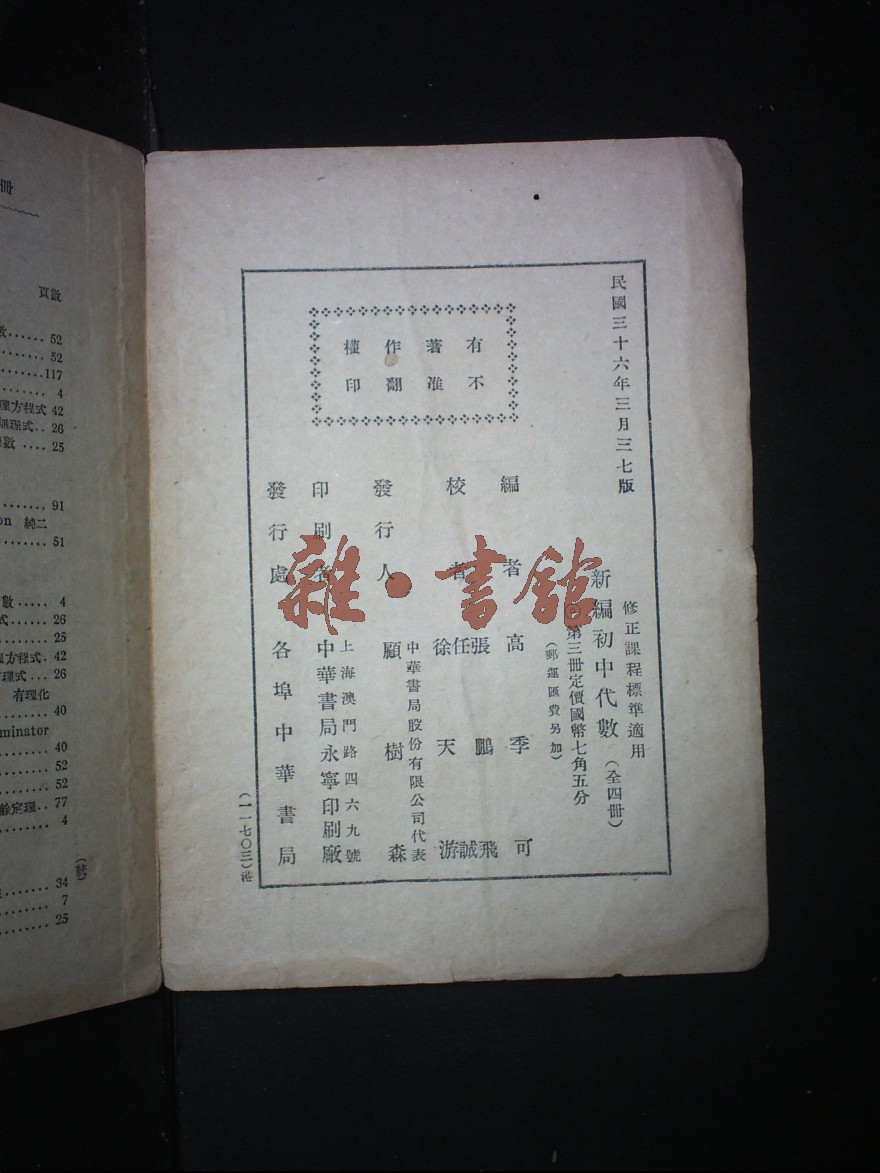 民國三十六年三月三七版
修正課程標準適用
新編初中代數(全四冊)
第三冊定價國幣七角五分
(郵運匯費另加)
有著作權
不准翻印
編者 高季可
校者 張鵬飛
任誠
徐天游
中華書局股份有限公司代表
發行人 顧樹森
上海澳門路四六九號
印刷者 中華書局永寧印刷廠
發行處 各埠中華書局
(一一七〇三)港
雜·書館
冊
頁數
數...... 52
52
117
4
理方程式 42
無理式.. 26
數 .... 25
91
on 純二
51
數..... 4
式...... 26
25
理方程式. 42
理式... 26
有理化
40
minator
40
52
52
餘定理.. 77
4
34
7
25